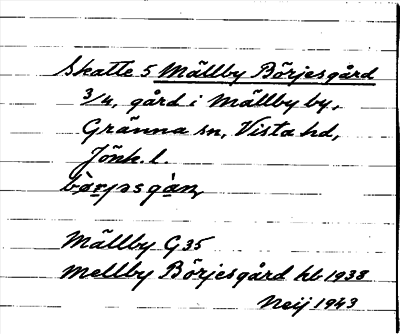 Skatte 5 Mällby Börjesgård
3/4, gård i Mällby by,
Gränna sn, Vista hd,
Jönk. l.
Mällby G35
Mellby Börjesgård hb 1938
Neij 1943